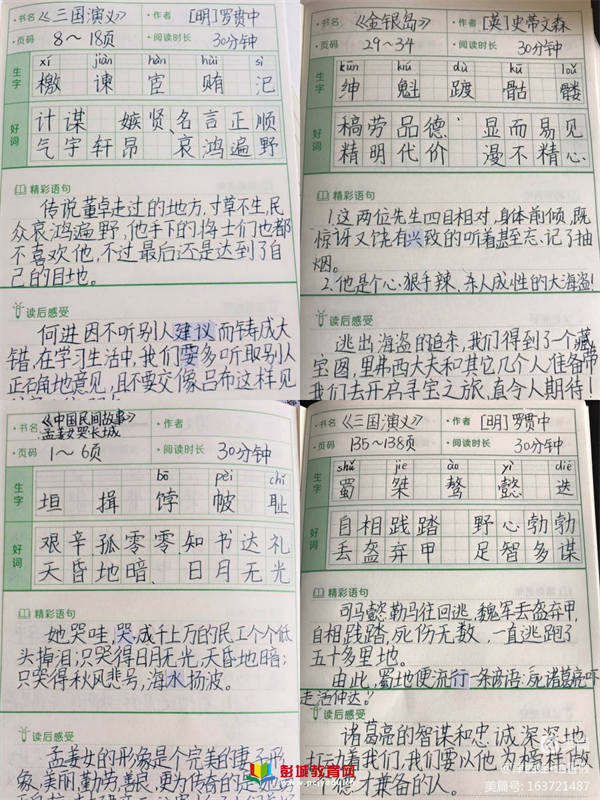 ·书名《三国演义》 ·作者 [明]罗贯中
·页码 8~18页 ·阅读时长 30分钟
生字 xí jiàn hàn huì sì
檄 谏 宦 贿 汜
好词 计谋 嫉贤、名言正顺
气宇轩昂 哀鸿遍野
精彩语句
传说董卓走过的地方,寸草不生,民
众哀鸿遍野,他手下的将士们也都
不喜欢他,不过最后还是达到了自
己的目地。
读后感受
何进因不听别人建议而铸成大
错,在学习生活中,我们要多听取别人
正确地意见,且不要交像吕布这样见
·书名《金银岛》 ·作者 [英]史蒂文森
·页码 29~34 ·阅读时长 30分钟
生字 kūn kuí dù kū lóu
绅 魁 踱 骷 髅
好词 犒劳 品德 显而易见
精明 代价 漫不精心
精彩语句
1.这两位先生四目相对,身体前倾,既
惊讶又饶有兴致的听着甚至忘记了抽
烟。
2.他是个心狠手辣、杀人成性的大海盗!
读后感受
逃出海盗的追杀,我们得到了一个藏
宝图,里弗西大夫和其它几个人准备带
我们去开启寻宝之旅,真令人期待!
·书名《中国民间故事》 ·作者
孟姜女哭长城
·页码 1~6页 ·阅读时长 30分钟
生字 bō pèi chǐ
垣 揖 饽 帔 耻
好词 艰辛 孤零零 知书达礼
天昏地暗 日月无光
精彩语句
她哭哇,哭,成千上万的民工个个低
头掉泪;只哭得日月无光,天昏地暗;
只哭得秋风悲号,海水扬波。
读后感受
孟姜女的形象是个完美的妻子形
象,美丽勤劳善良,更为传奇的是她
·书名《三国演义》 ·作者 [明]罗贯中
·页码 135~138页 ·阅读时长 30分钟
生字 shǔ jié ào yì dié
蜀 桀 骜 懿 迭
好词 自相践踏 野心勃勃
丢盔弃甲 足智多谋
精彩语句
司马懿勒马往回逃,魏军丢盔弃甲,
自相践踏,死伤无数,一直逃跑了
五十多里地。
由此,蜀地便流行一条谚语:死诸葛吓
走活仲达!
读后感受
诸葛亮的智谋和忠诚深深地
打动着我们,我们要以他为榜样做
才兼备的人。
彭城教育网
美篇号:163721487